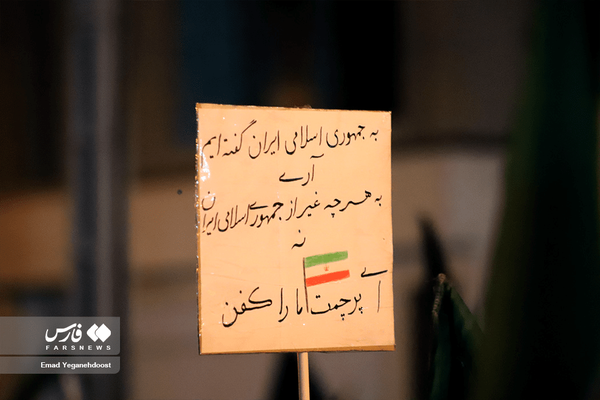 به جمهوری اسلامی ایران گفته ایم
آرے
به هرچه غیر از جمهورے اسلامی ایران
نه
اے پرچمت ما را کفن
فارس
FARSNEWS
Emad Yeganehdoost